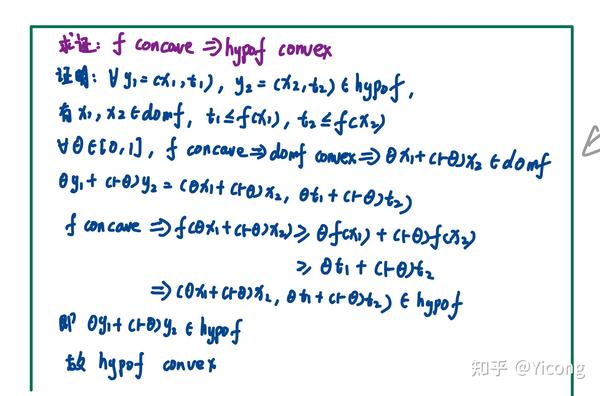 求证: f concave ⇒ hypof convex
证明: ∀ y₁=(x₁,t₁), y₂=(x₂,t₂) ∈ hypof,
有 x₁, x₂ ∈ domf, t₁≤f(x₁), t₂≤f(x₂)
∀ θ∈[0,1], f concave ⇒ domf convex ⇒ θx₁+(1-θ)x₂ ∈ domf
θy₁+(1-θ)y₂ = (θx₁+(1-θ)x₂, θt₁+(1-θ)t₂)
f concave ⇒ f(θx₁+(1-θ)x₂) ≥ θf(x₁)+(1-θ)f(x₂)
≥ θt₁+(1-θ)t₂
⇒ (θx₁+(1-θ)x₂, θt₁+(1-θ)t₂) ∈ hypof
即 θy₁+(1-θ)y₂ ∈ hypof
故 hypof convex
知乎 @Yicong